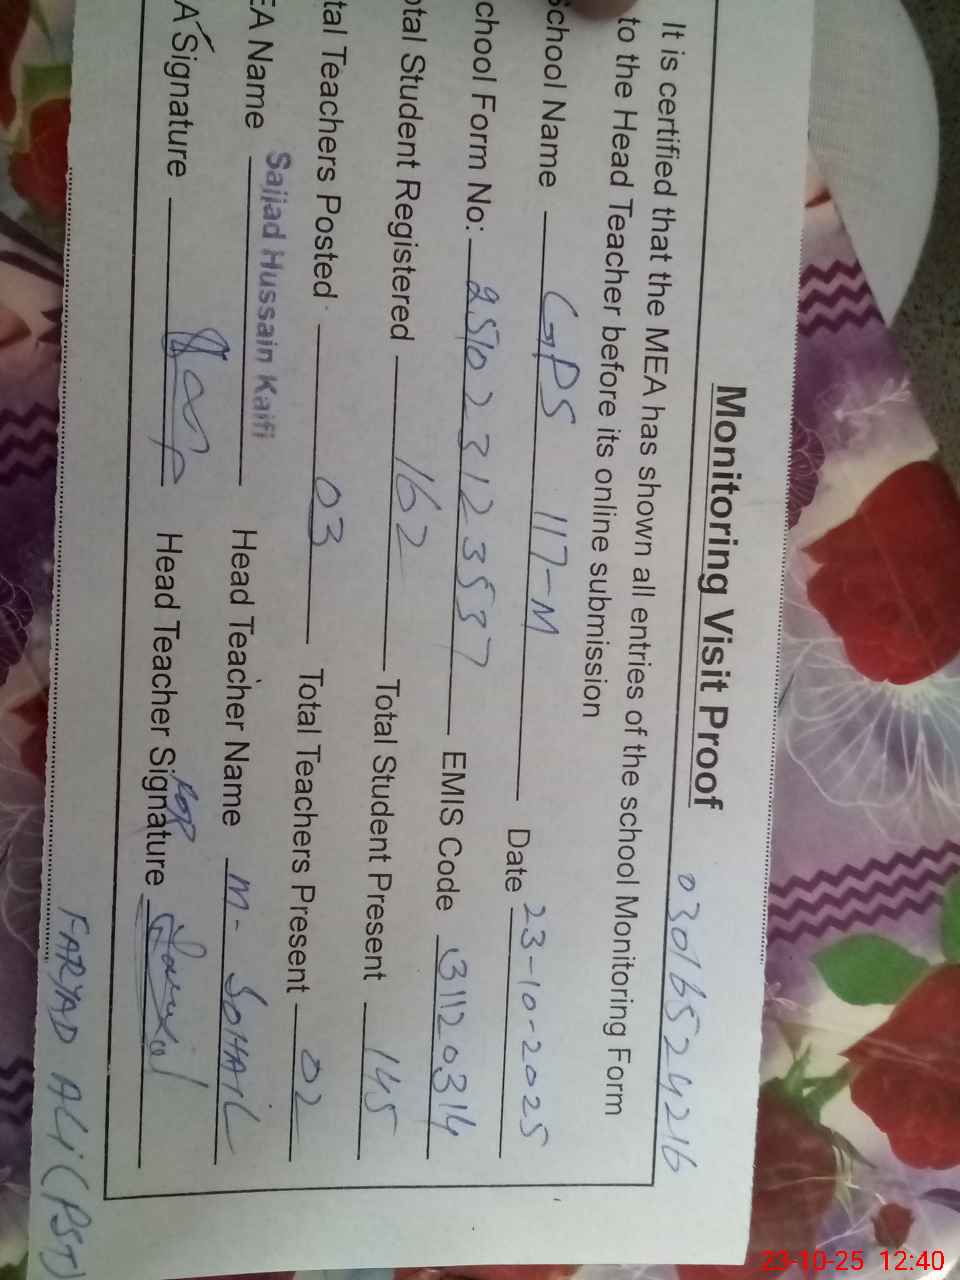 Monitoring Visit Proof 03016524216
It is certified that the MEA has shown all entries of the school Monitoring Form
to the Head Teacher before its online submission
School Name GPS 117-M Date 23-10-2025
chool Form No: 251023123537 EMIS Code 31120314
otal Student Registered 162 Total Student Present 145
tal Teachers Posted 03 Total Teachers Present 02
EA Name Sajjad Hussain Kaifi Head Teacher Name M- SOHAIL
A Signature Head Teacher Signature
FARYAD ALi (PST)
23-10-25 12:40